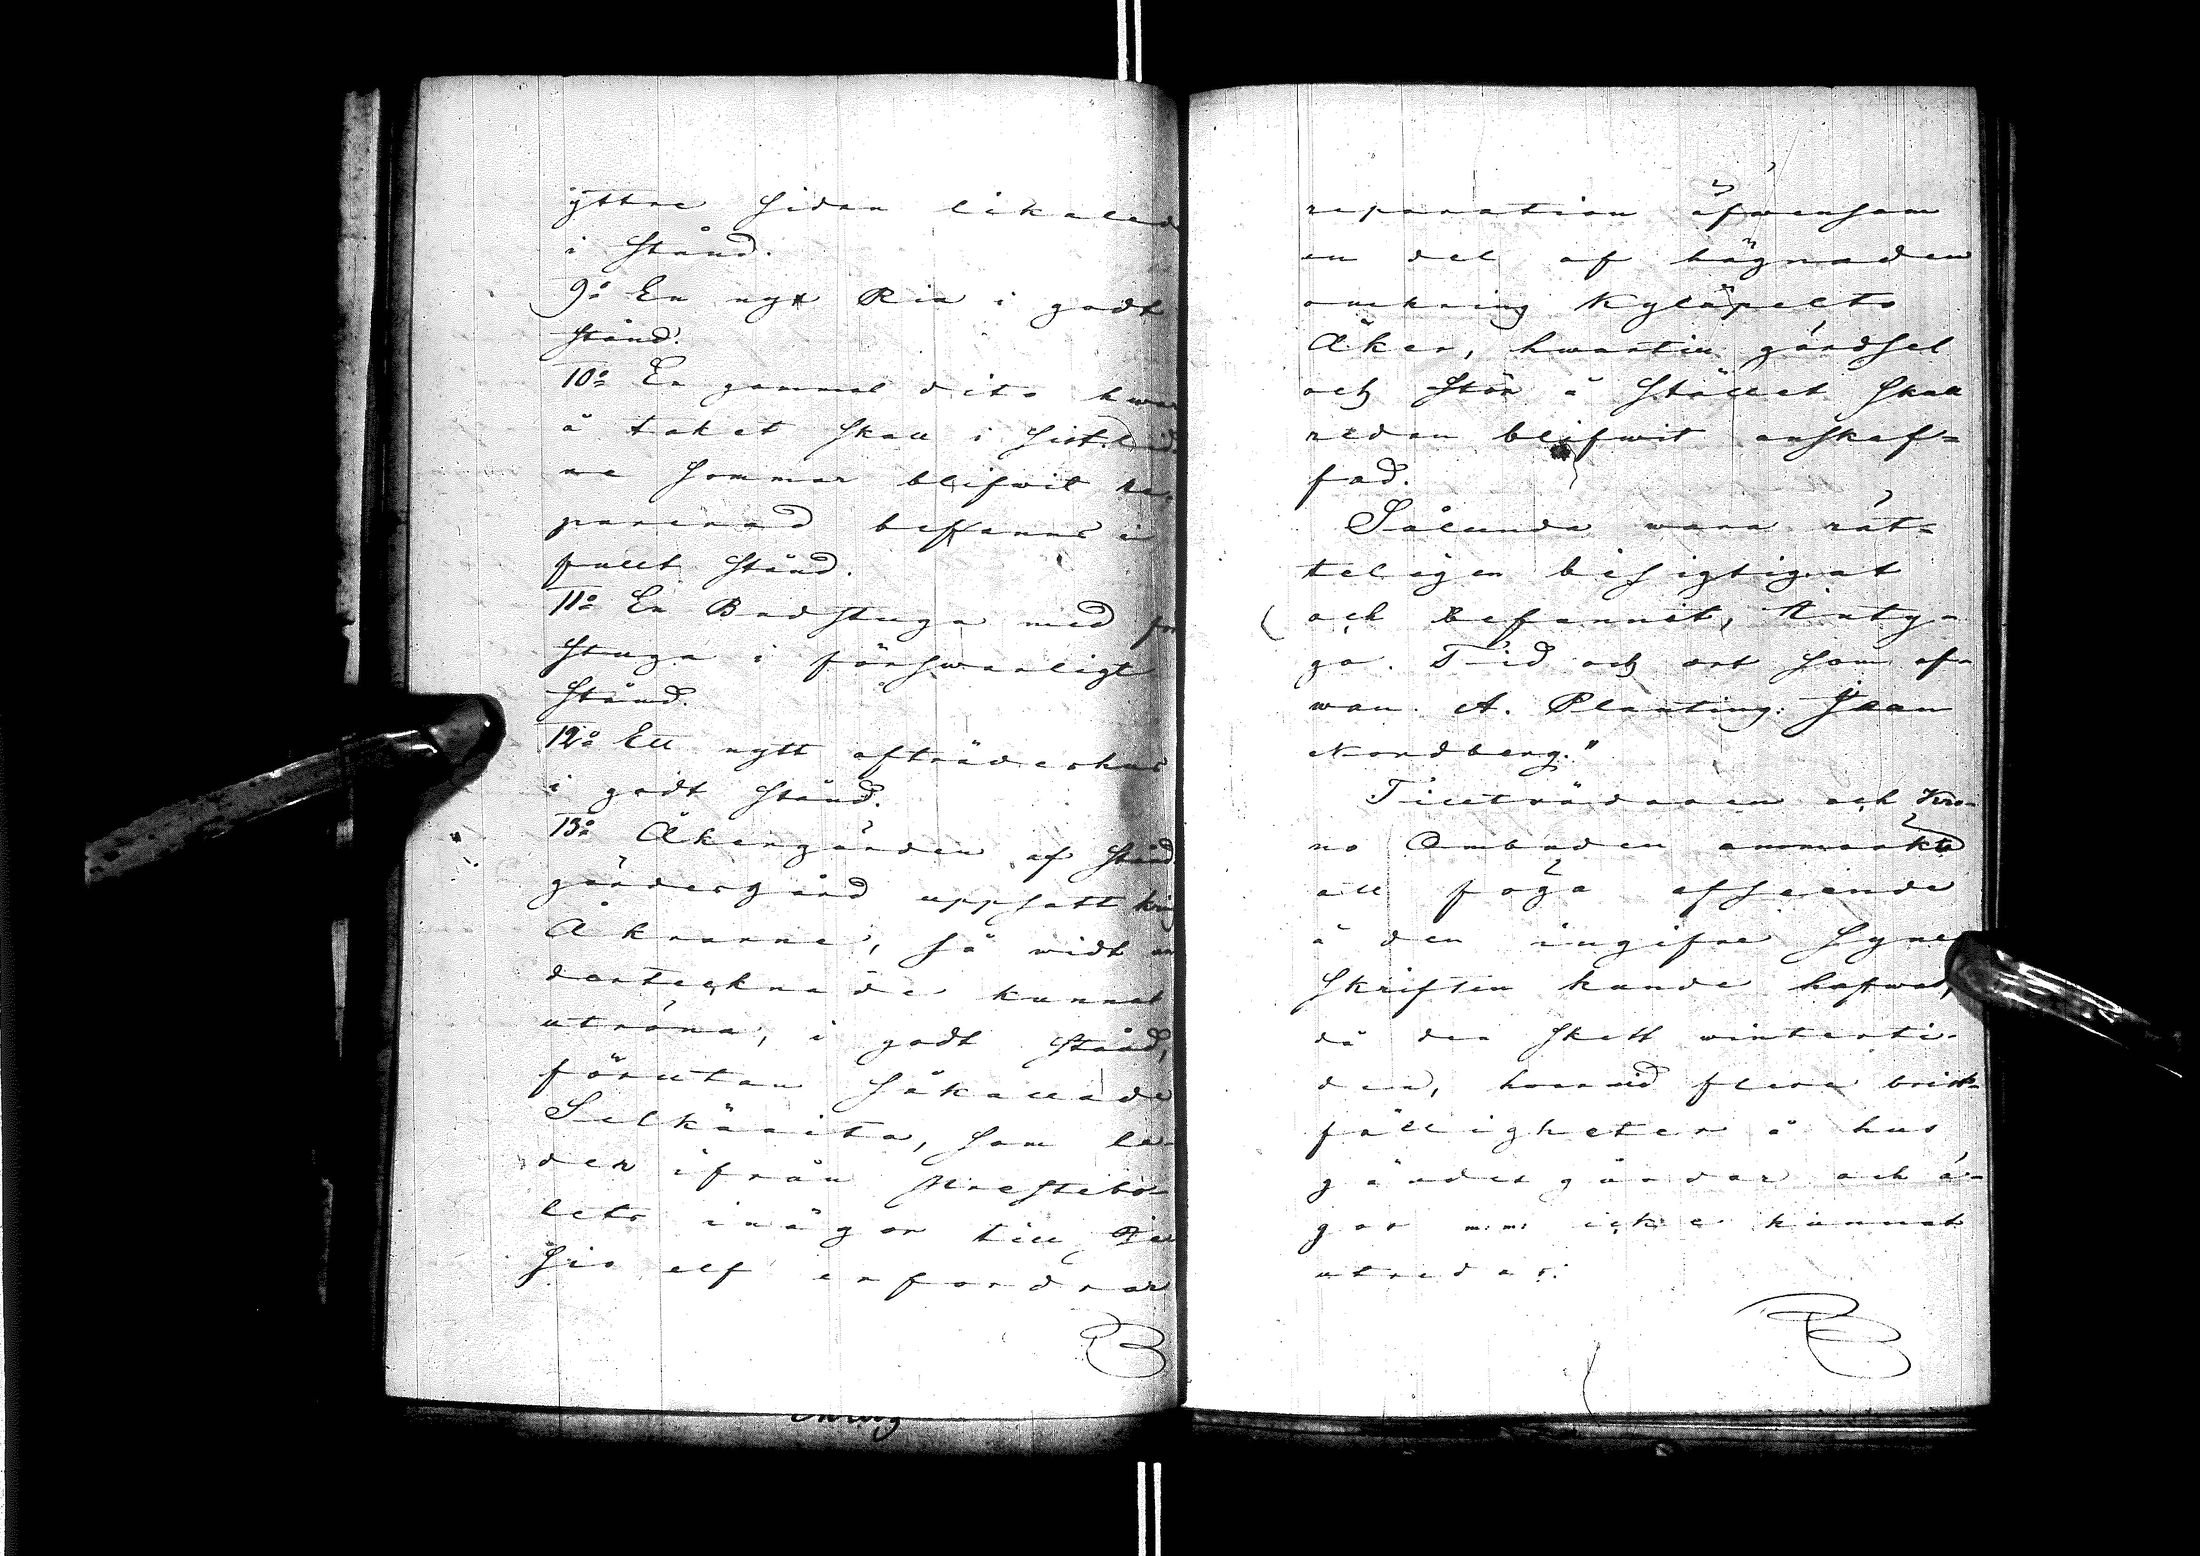 yttre sidan likaled
i stånd.
9:o En nyx Ria i godt
stånd.
10:o En gammal dito hwar
å taket skall i sistled
ne sommar blifwit re-
parerad befanns i
fullt stånd.
11:o En Badstuga med för
stuga i förswarligt
stånd.
12:o Ett nytt afträdeshus
i godt stånd.
13:o Åkergården af
gärdesgård uppsatt kring
Åkrarne, så widt un
dertecknade kunnat
utröna, i godt stånd,
förutan såkallade
Selkäaita, som le-
der ifrån Prestebo-
lets inägor till
sis elf erfordrar
reparation äfwensom
en del af hägnaden
omkring Kyläpelto
Åker, hwartill gärdsel
och stör å stället skall
redan blifwit anskaf-
fad.
Sålunda wara rät-
teligen besigtigat
och befunnit, Inty-
ga. Tid och ort som of-
wan. A. Planting. Johan
Nordberg."
Tillträdaren och Kro-
no Ombuden anmärkte
att föga afseende
å den ingifne Syne
skriften kunde hafwas,
då den skett winterti-
den, hwarwid flera brist-
fälligheter å hus
gärdesgårdar och ä-
gor m:m: icke kunnat
utredas.